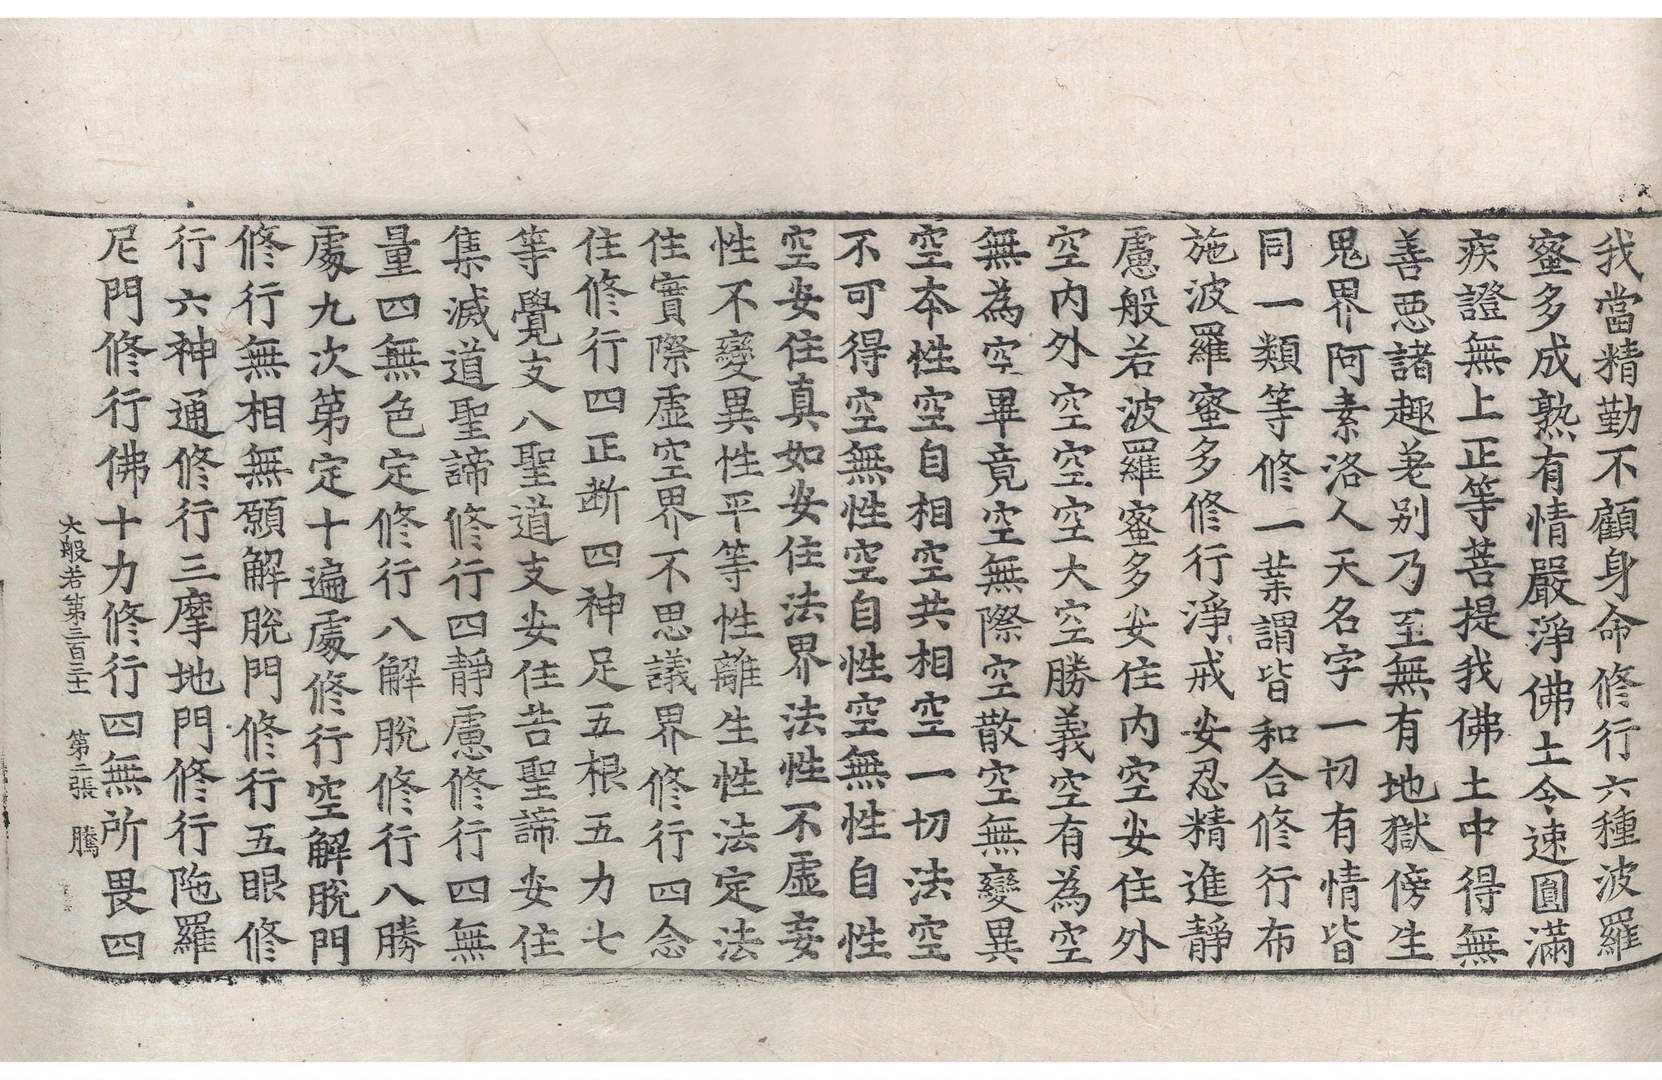 我當精勤不顧身命修行六種波羅
蜜多成熟有情嚴淨佛土令速圓滿
疾證無上正等菩提我佛土中得無
善惡諸趣差别乃至無有地獄傍生
鬼界阿素洛人天名字一切有情皆
同一類等修一業謂皆和合修行布
施波羅蜜多修行淨戒安忍精進靜
慮般若波羅蜜多安住內空安住外
空內外空空空大空勝義空有為空
無為空畢竟空無際空散空無變異
空本性空自相空共相空一切法空
不可得空無性空自性空無性自性
空安住真如安住法界法性不虛妄
性不變異性平等性離生性法定法
住實際虛空界不思議界修行四念
住修行四正断四神足五根五力七
等覺支八聖道支安住苦聖諦安住
集滅道聖諦修行四靜慮修行四無
量四無色定修行八解脫修行八勝
處九次第定十遍處修行空解脫門
修行無相無願解脫門修行五眼修
行六神通修行三摩地門修行陁羅
尼門修行佛十力修行四無所畏四
大般若第三百三十 第二張 騰